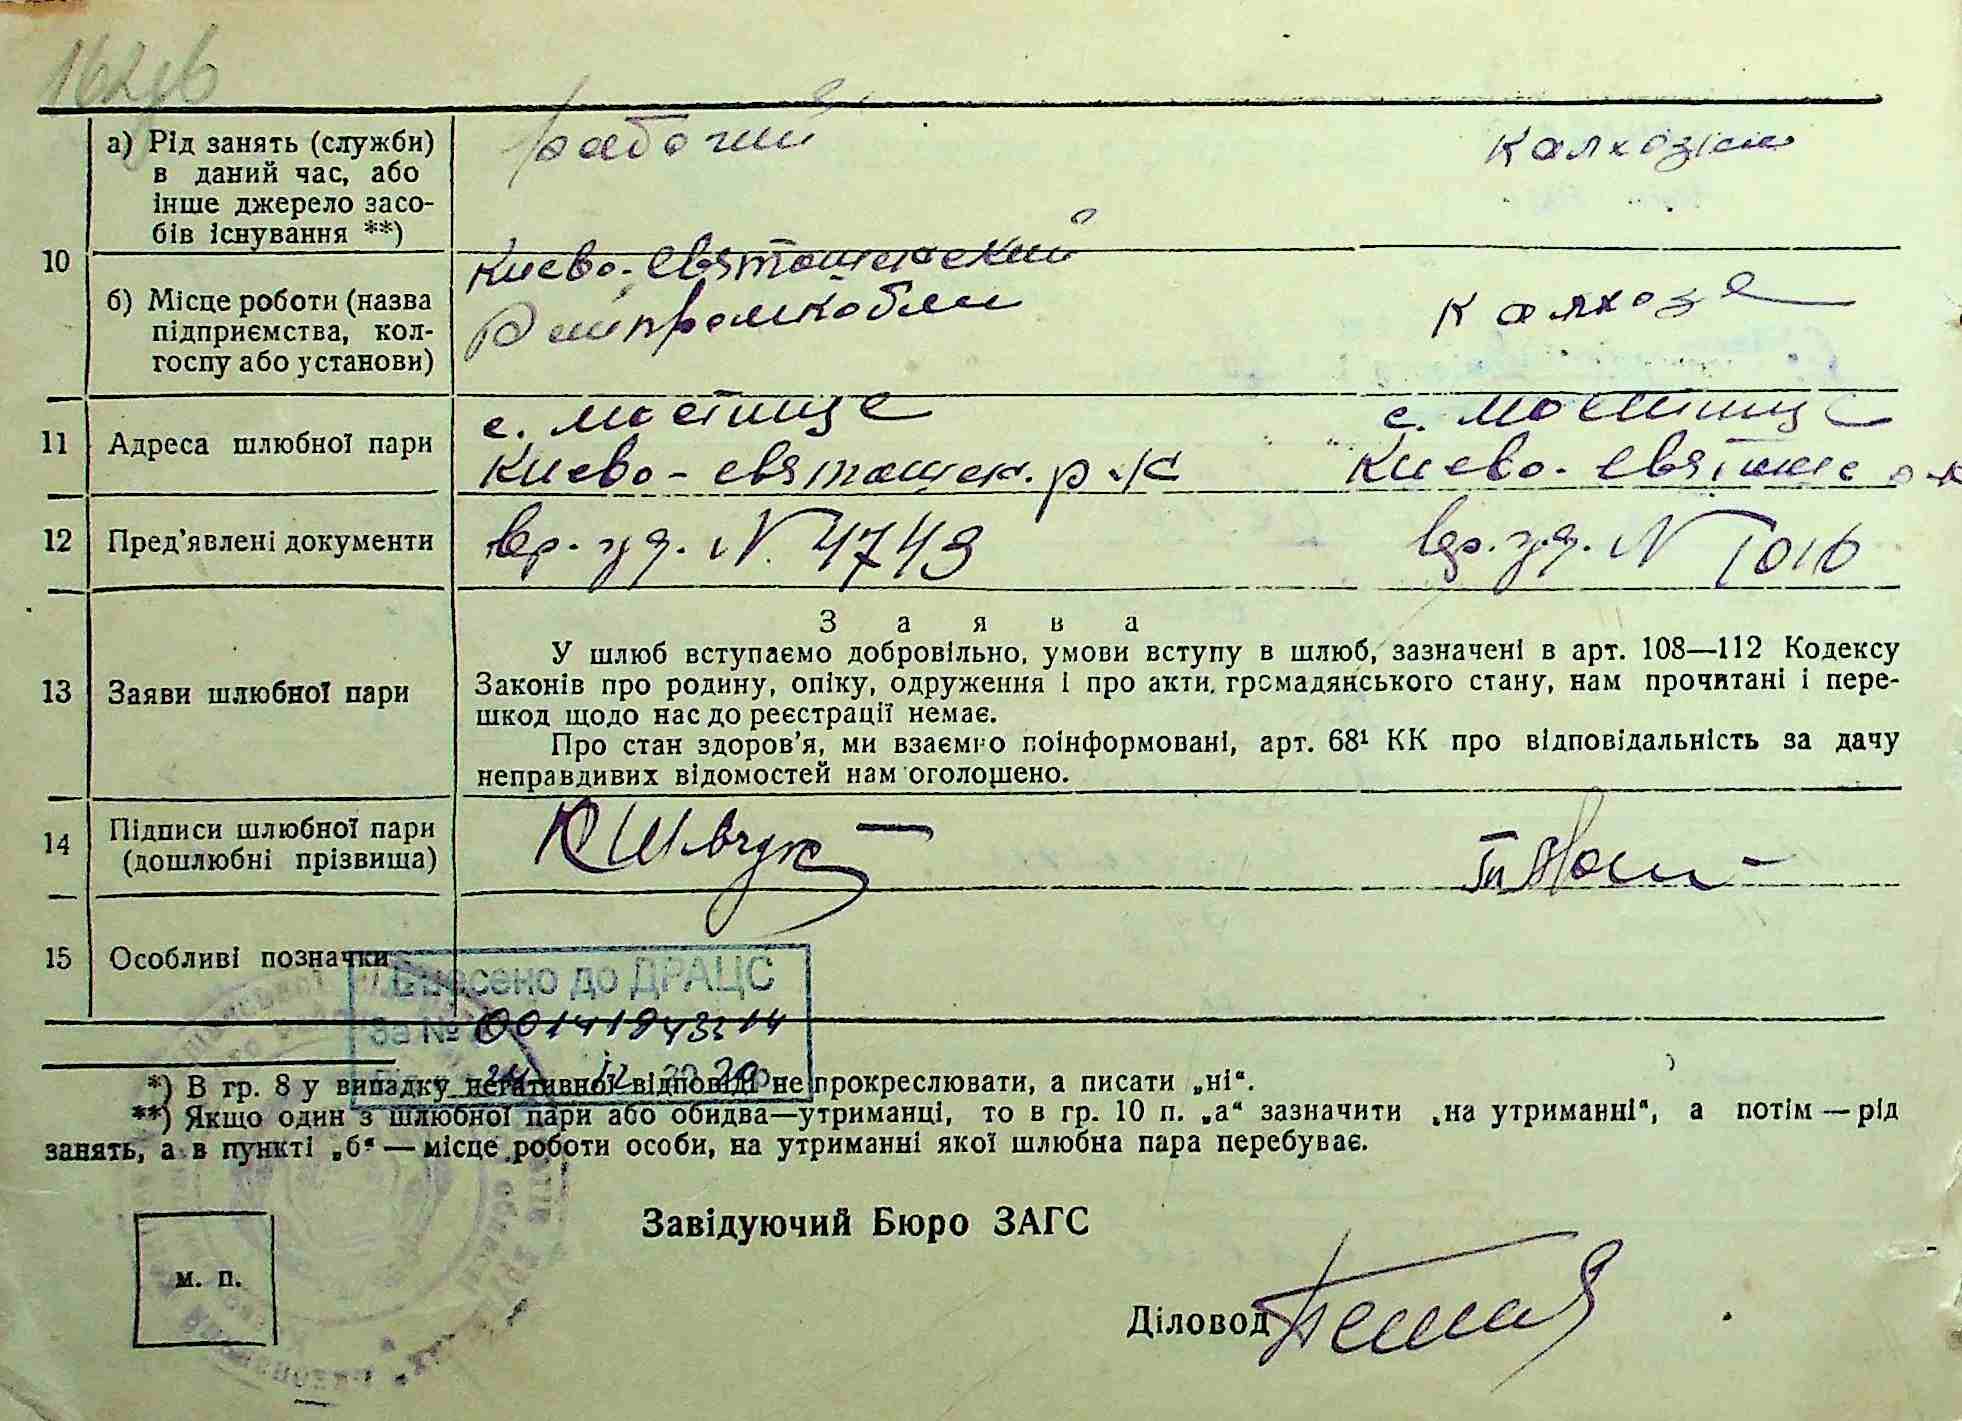 а) Рід занять (служби)
в даний час, або
інше джерело засо-
бів існування **)
рабочий
10
б) Місце роботи (назва
підприємства, кол-
госпу або установи)
Киево-Святошинский
Райпромкомби
Калхоз
11
Адреса шлюбної пари
с. Мостище
с. Мостище
Киево-Святошен. р-к
Киево-Святош р-к
12
Пред'явлені документи
вр. уд. N. 4749
вр. уд. N 1016
13
Заяви шлюбної пари
Заява
У шлюб вступаємо добровільно, умови вступу в шлюб, зазначені в арт. 108—112 Кодексу
Законів про родину, опіку, одруження і про акти громадянського стану, нам прочитані і пере-
шкод щодо нас до реєстрації немає.
Про стан здоров'я, ми взаємно поінформовані, арт. 68¹ КК про відповідальність за дачу
неправдивих відомостей нам оголошено.
14
Підписи шлюбної пари
(дошлюбні прізвища)
Шевчук
15
Особливі позначки
Внесено до ДРАЦС
За № 00141943314
*) В гр. 8 у випадку негативної відповіді не прокреслювати, а писати „ні“.
**) Якщо один з шлюбної пари або обидва—утриманці, то в гр. 10 п. „а“ зазначити „на утриманні“, а потім — рід
занять, а в пункті „б“ — місце роботи особи, на утриманні якої шлюбна пара перебуває.
Завідуючий Бюро ЗАГС
м. п.
Діловод